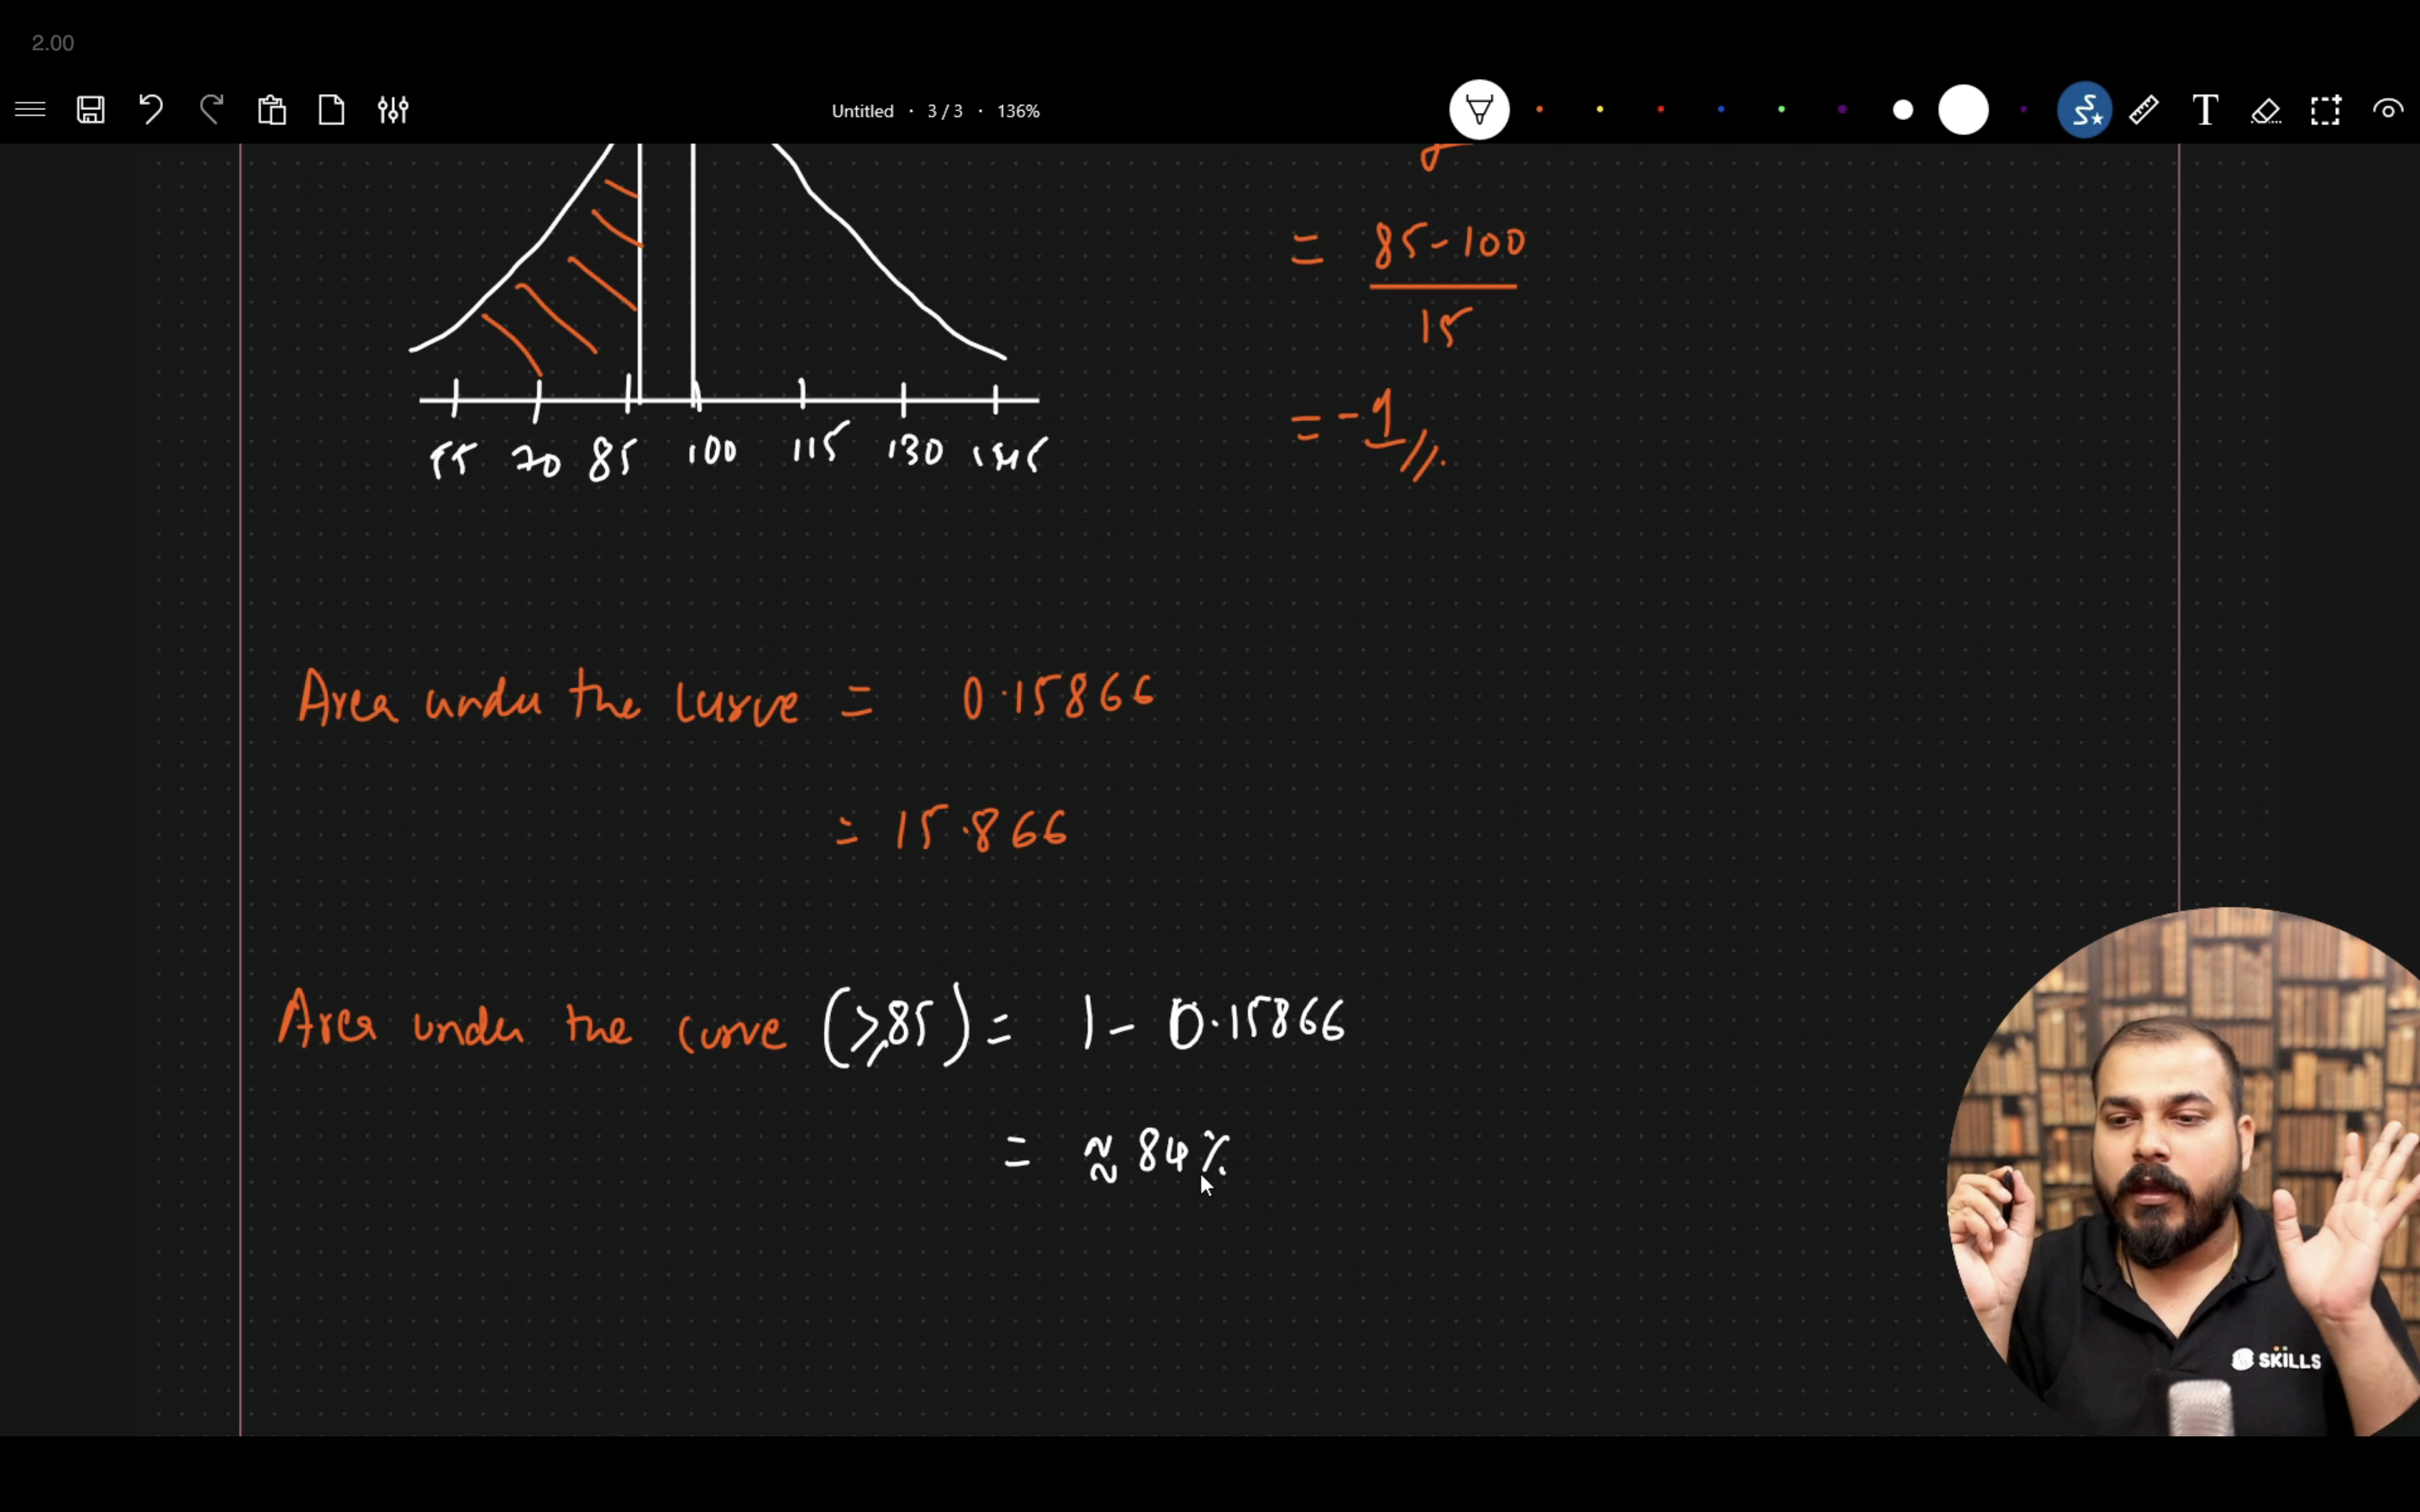 2.00
Untitled · 3 / 3 · 136%
T
= 85-100
15
= -1
55 70 85 100 115 130 145
Area under the curve = 0.15866
= 15.866
Area under the curve (≥85) = 1 - 0.15866
= ≈ 84%
SKILLS